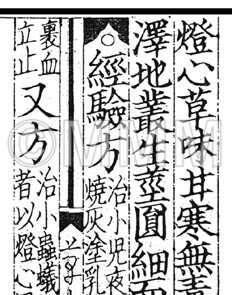 燈心草味甘寒無毒
澤地叢生莖圓細而
經驗方
治小兒夜
燒灰塗乳
裏血
立止
又方
治小蟲蟻
者以燈心